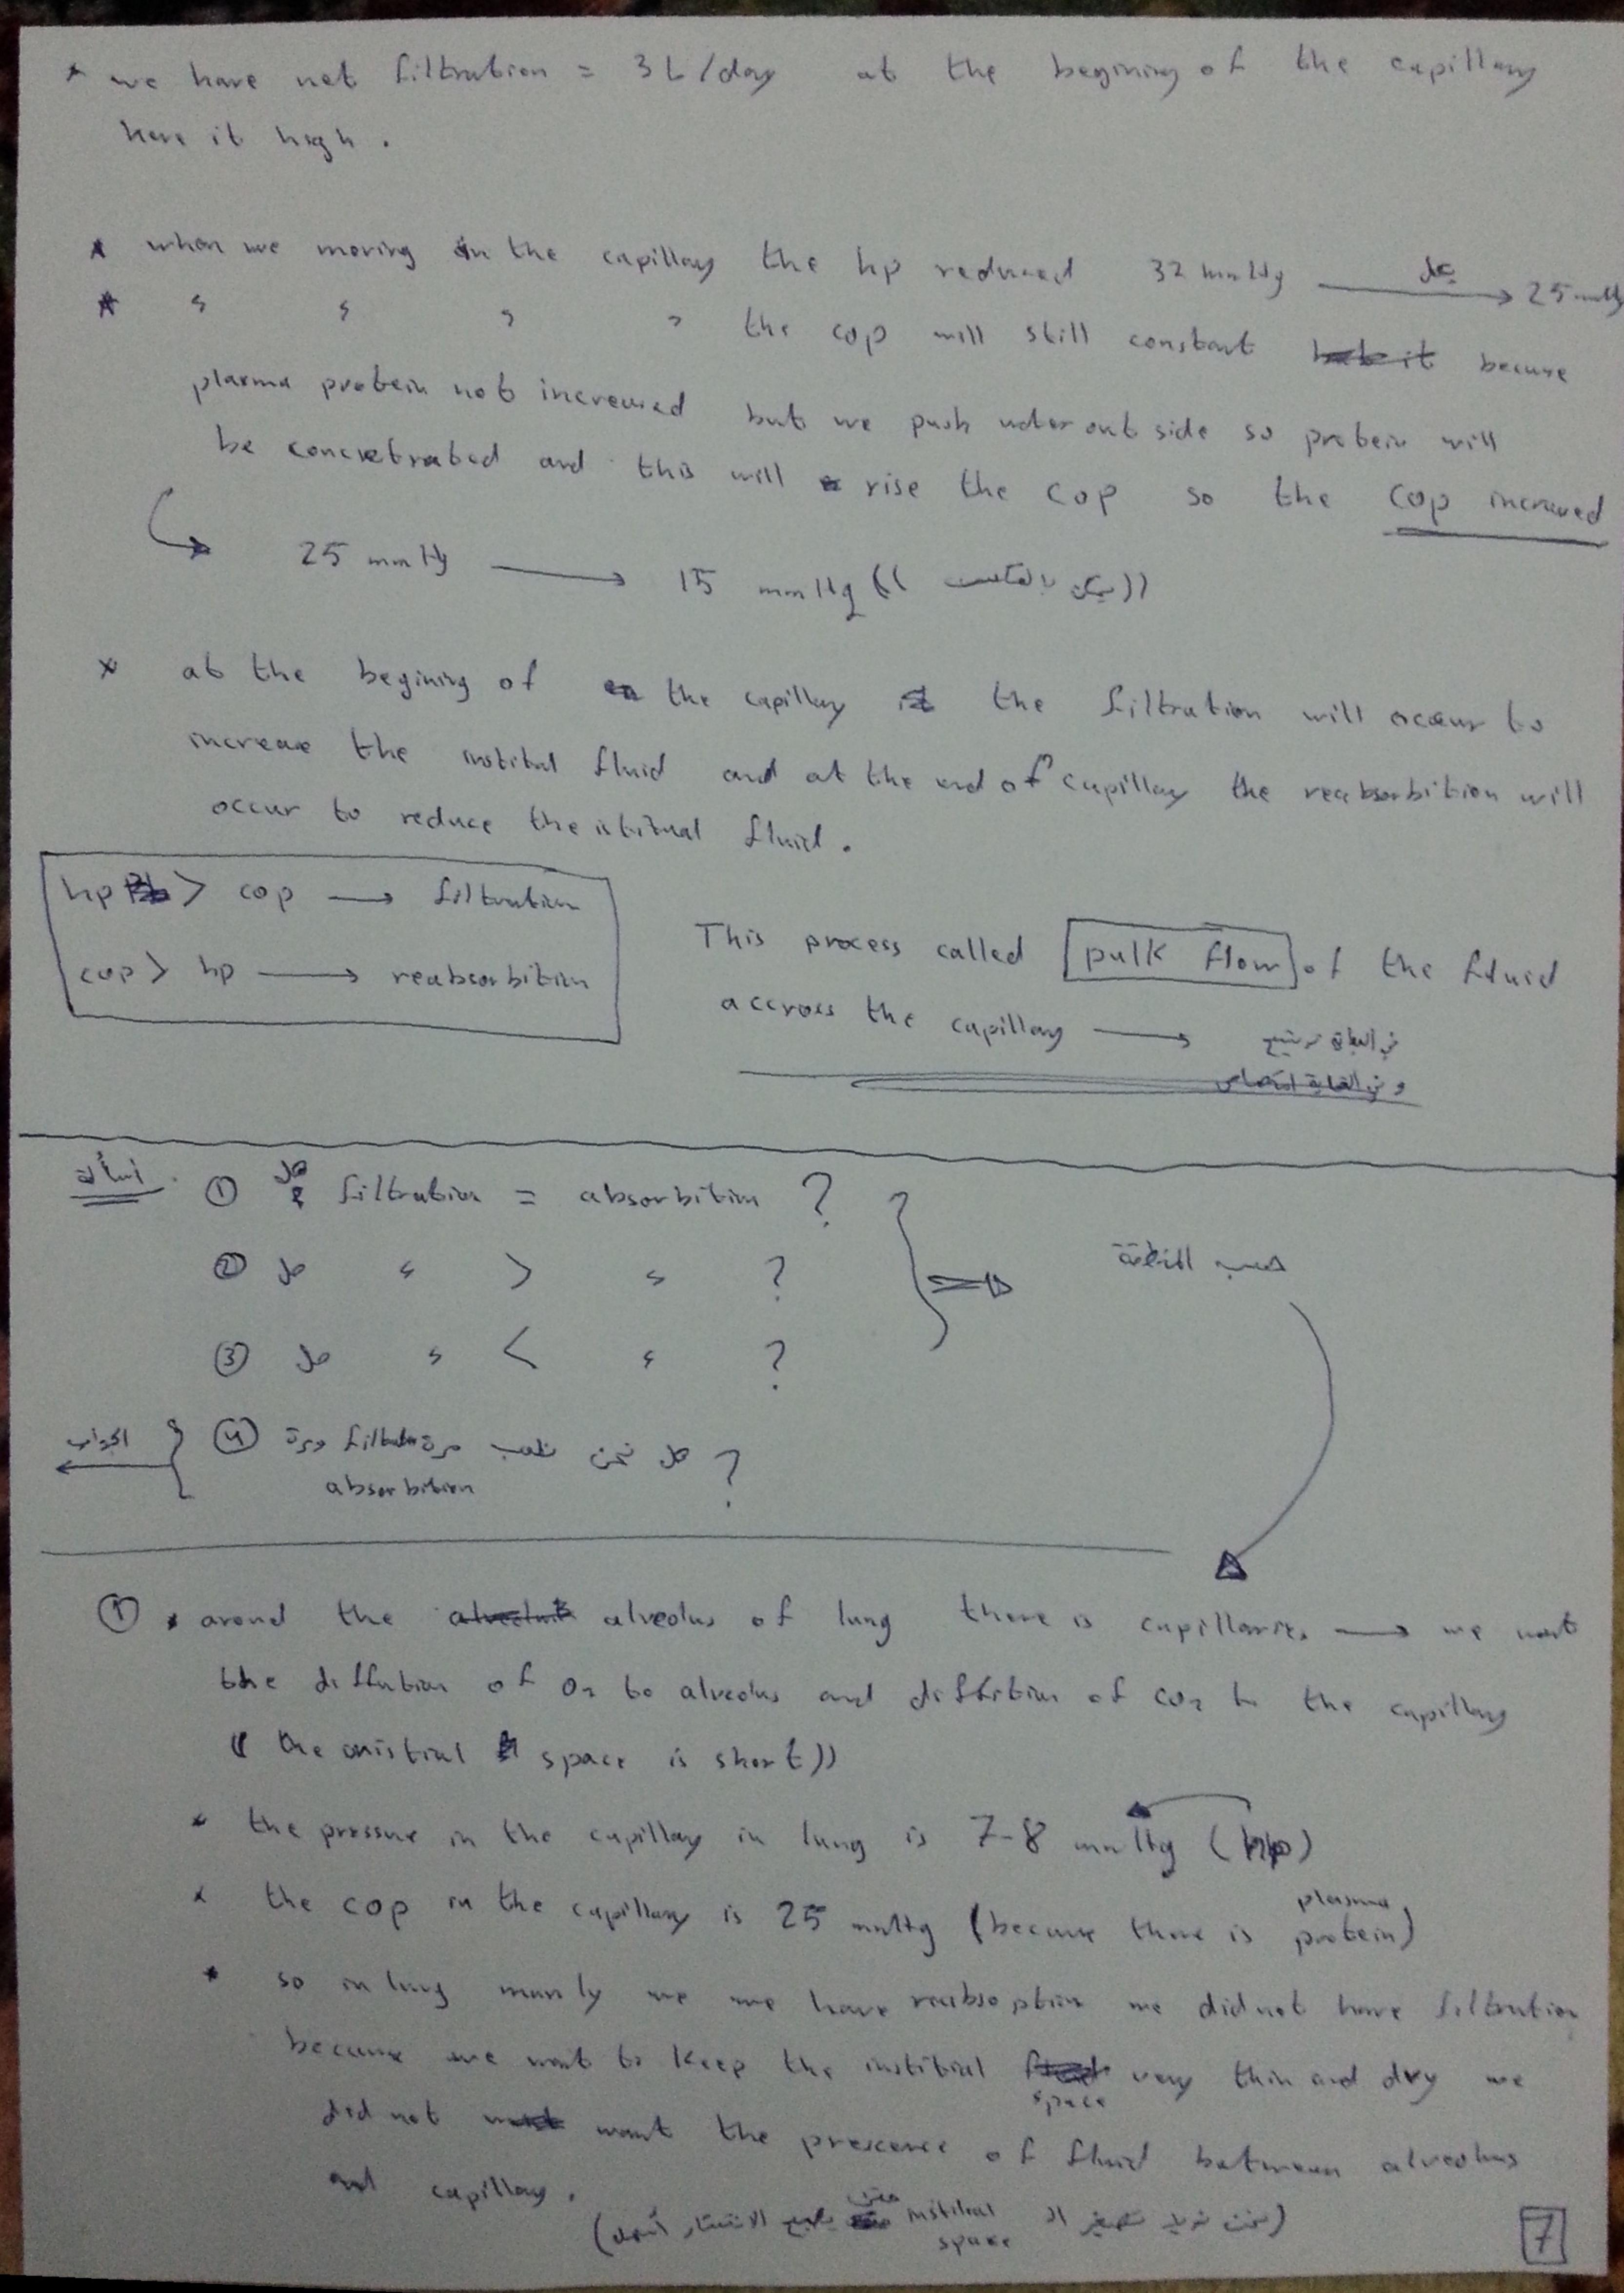 * we have net filtration = 3 L/day at the begining of the capillary
here it high .
* when we moving in the capillary the hp reduced 32 mmHg → 25 mmHg
* " " " " the cop will still constant because
plasma protein not increased but we push water out side so protein will
be concretrated and this will rise the cop so the cop incresed
25 mmHg → 15 mmHg ((بالعكس))
* at the begining of the capillary the filtration will occur to
increase the instital fluid and at the end of capillay the reabsorbition will
occur to reduce the istitual fluid .
hp > cop → filtration
cop > hp → reabsorbition
This process called pulk flow of the fluid
accross the capillay →
في البداية ترشيح
و في النهاية امتصاص
أسألة
① هل filtration = absorbition ?
② هل " > " ?
③ هل " < " ?
حسب المنطقة
④ هل نحن نلعب مرة filtration ومرة
absorbition ?
الجواب
① * arond the alveolus of lung there is capillaries → we want
the diffution of O2 to alveolus and diffition of CO2 to the capillay
(( the inistial space is short))
* the pressue in the capillay in lung is 7-8 mmHg (hp)
* the cop in the capillary is 25 mmHg (because there is plasma protein)
* so in lung manly we we have reabsoption we did not have filtration
because we want to keep the instibial space very thin and dry we
did not want the prescence of fluid between alveolus
and capillay .
(نحن نريد تصغير ال instibial space حتى يصبح الانتشار أسهل)
7